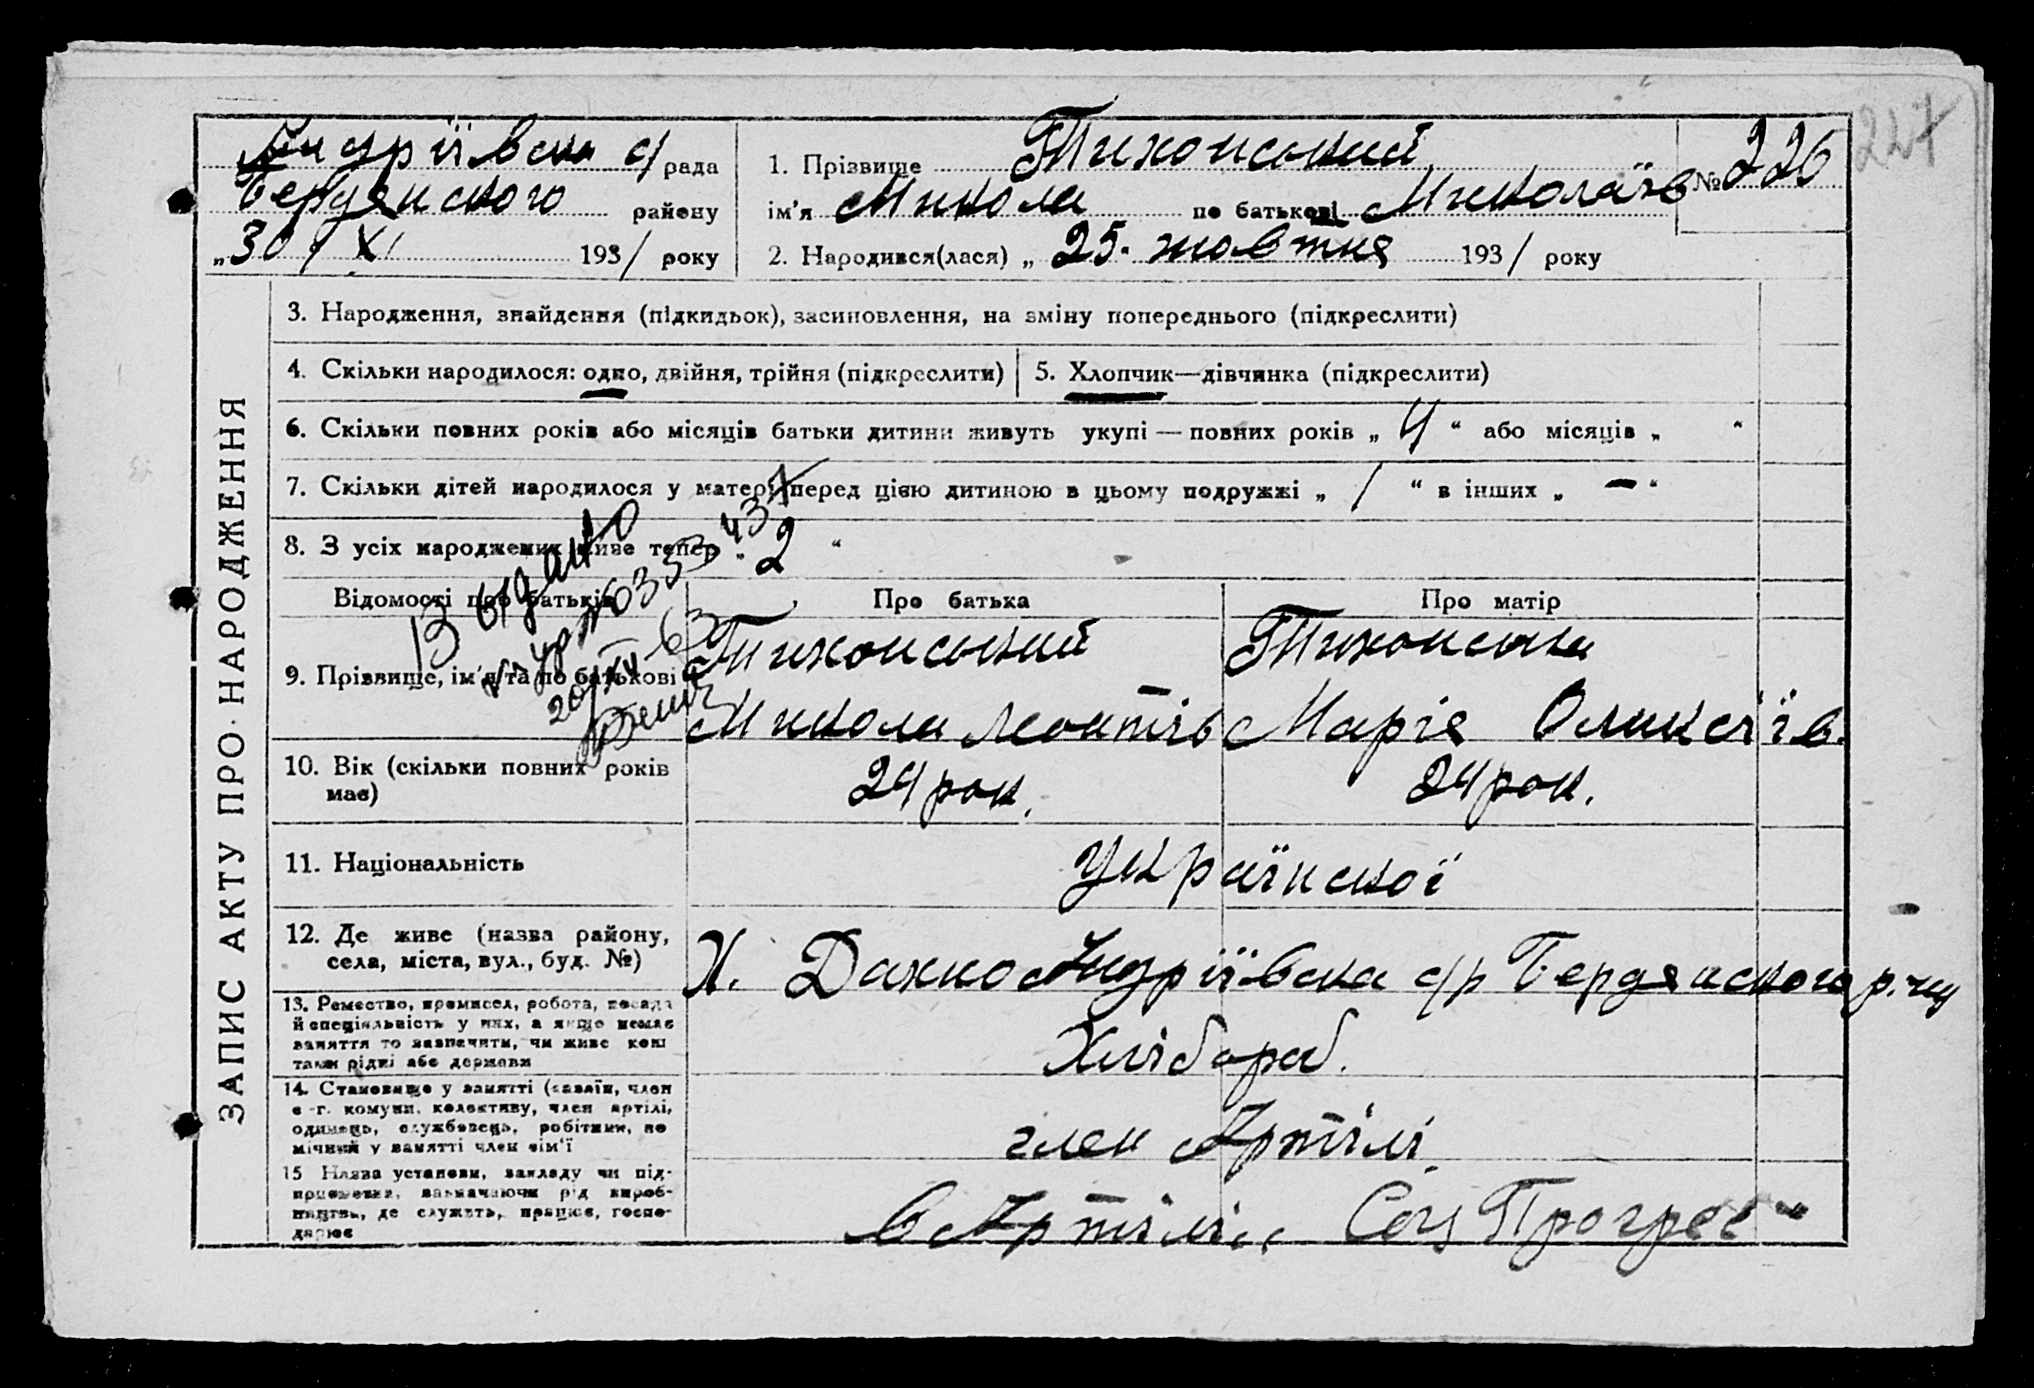 Андріївська с/рада
Бердянського району
„30/XI 1931 року
1. Прізвище Тихонський
ім'я Микола по батькові Миколаїв
№ 226
227
2. Народився(лася) „25. жовтня 1931 року
ЗАПИС АКТУ ПРО НАРОДЖЕННЯ
3. Народження, знайдення (підкидьок), засиновлення, на зміну попереднього (підкреслити)
4. Скільки народилося: одно, двійня, трійня (підкреслити)
5. Хлопчик—дівчинка (підкреслити)
6. Скільки повних років або місяців батьки дитини живуть укупі — повних років „ 4 “ або місяців „ “
7. Скільки дітей народилося у матері перед цією дитиною в цьому подружжі „ 1 “ в інших „ — “
8. З усіх народжених живе тепер „ 2 “
Відомості про батьків
Про батька
Про матір
9. Прізвище, ім'я та по батькові
Тихонський
Микола Леонтів
Тихонська
Марія Олексіїв.
10. Вік (скільки повних років
має)
24 рок.
24 рок.
11. Національність
Української
12. Де живе (назва району,
села, міста, вул., буд. №)
Х. Дахно Андріївська с/р Бердянського р-ну
13. Ремество, промисел, робота, посада
й спеціяльність у них, а якщо немає
заняття то зазначити, чи живе коштами рідні або держави
Хлібороб.
14. Становище у занятті (хазяїн, член
с-г. комуни, колективу, член артілі,
одинець, службовець, робітник, по
мічний у занятті член сім'ї
член Артілі
15 Назва установи, закладу чи під-
приємства, зазначаючи рід вироб-
ництва, де служить, працює, госпо-
дарює
в Артілі „Соц Прогрес“
Выдано
20/XII-63